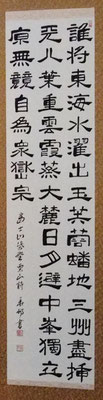 誰將東海水濯出玉芙蓉蟠地三州盡插
天八葉重雲霞蒸大麓日月避中峯獨立
原無競自為衆嶽宗
書